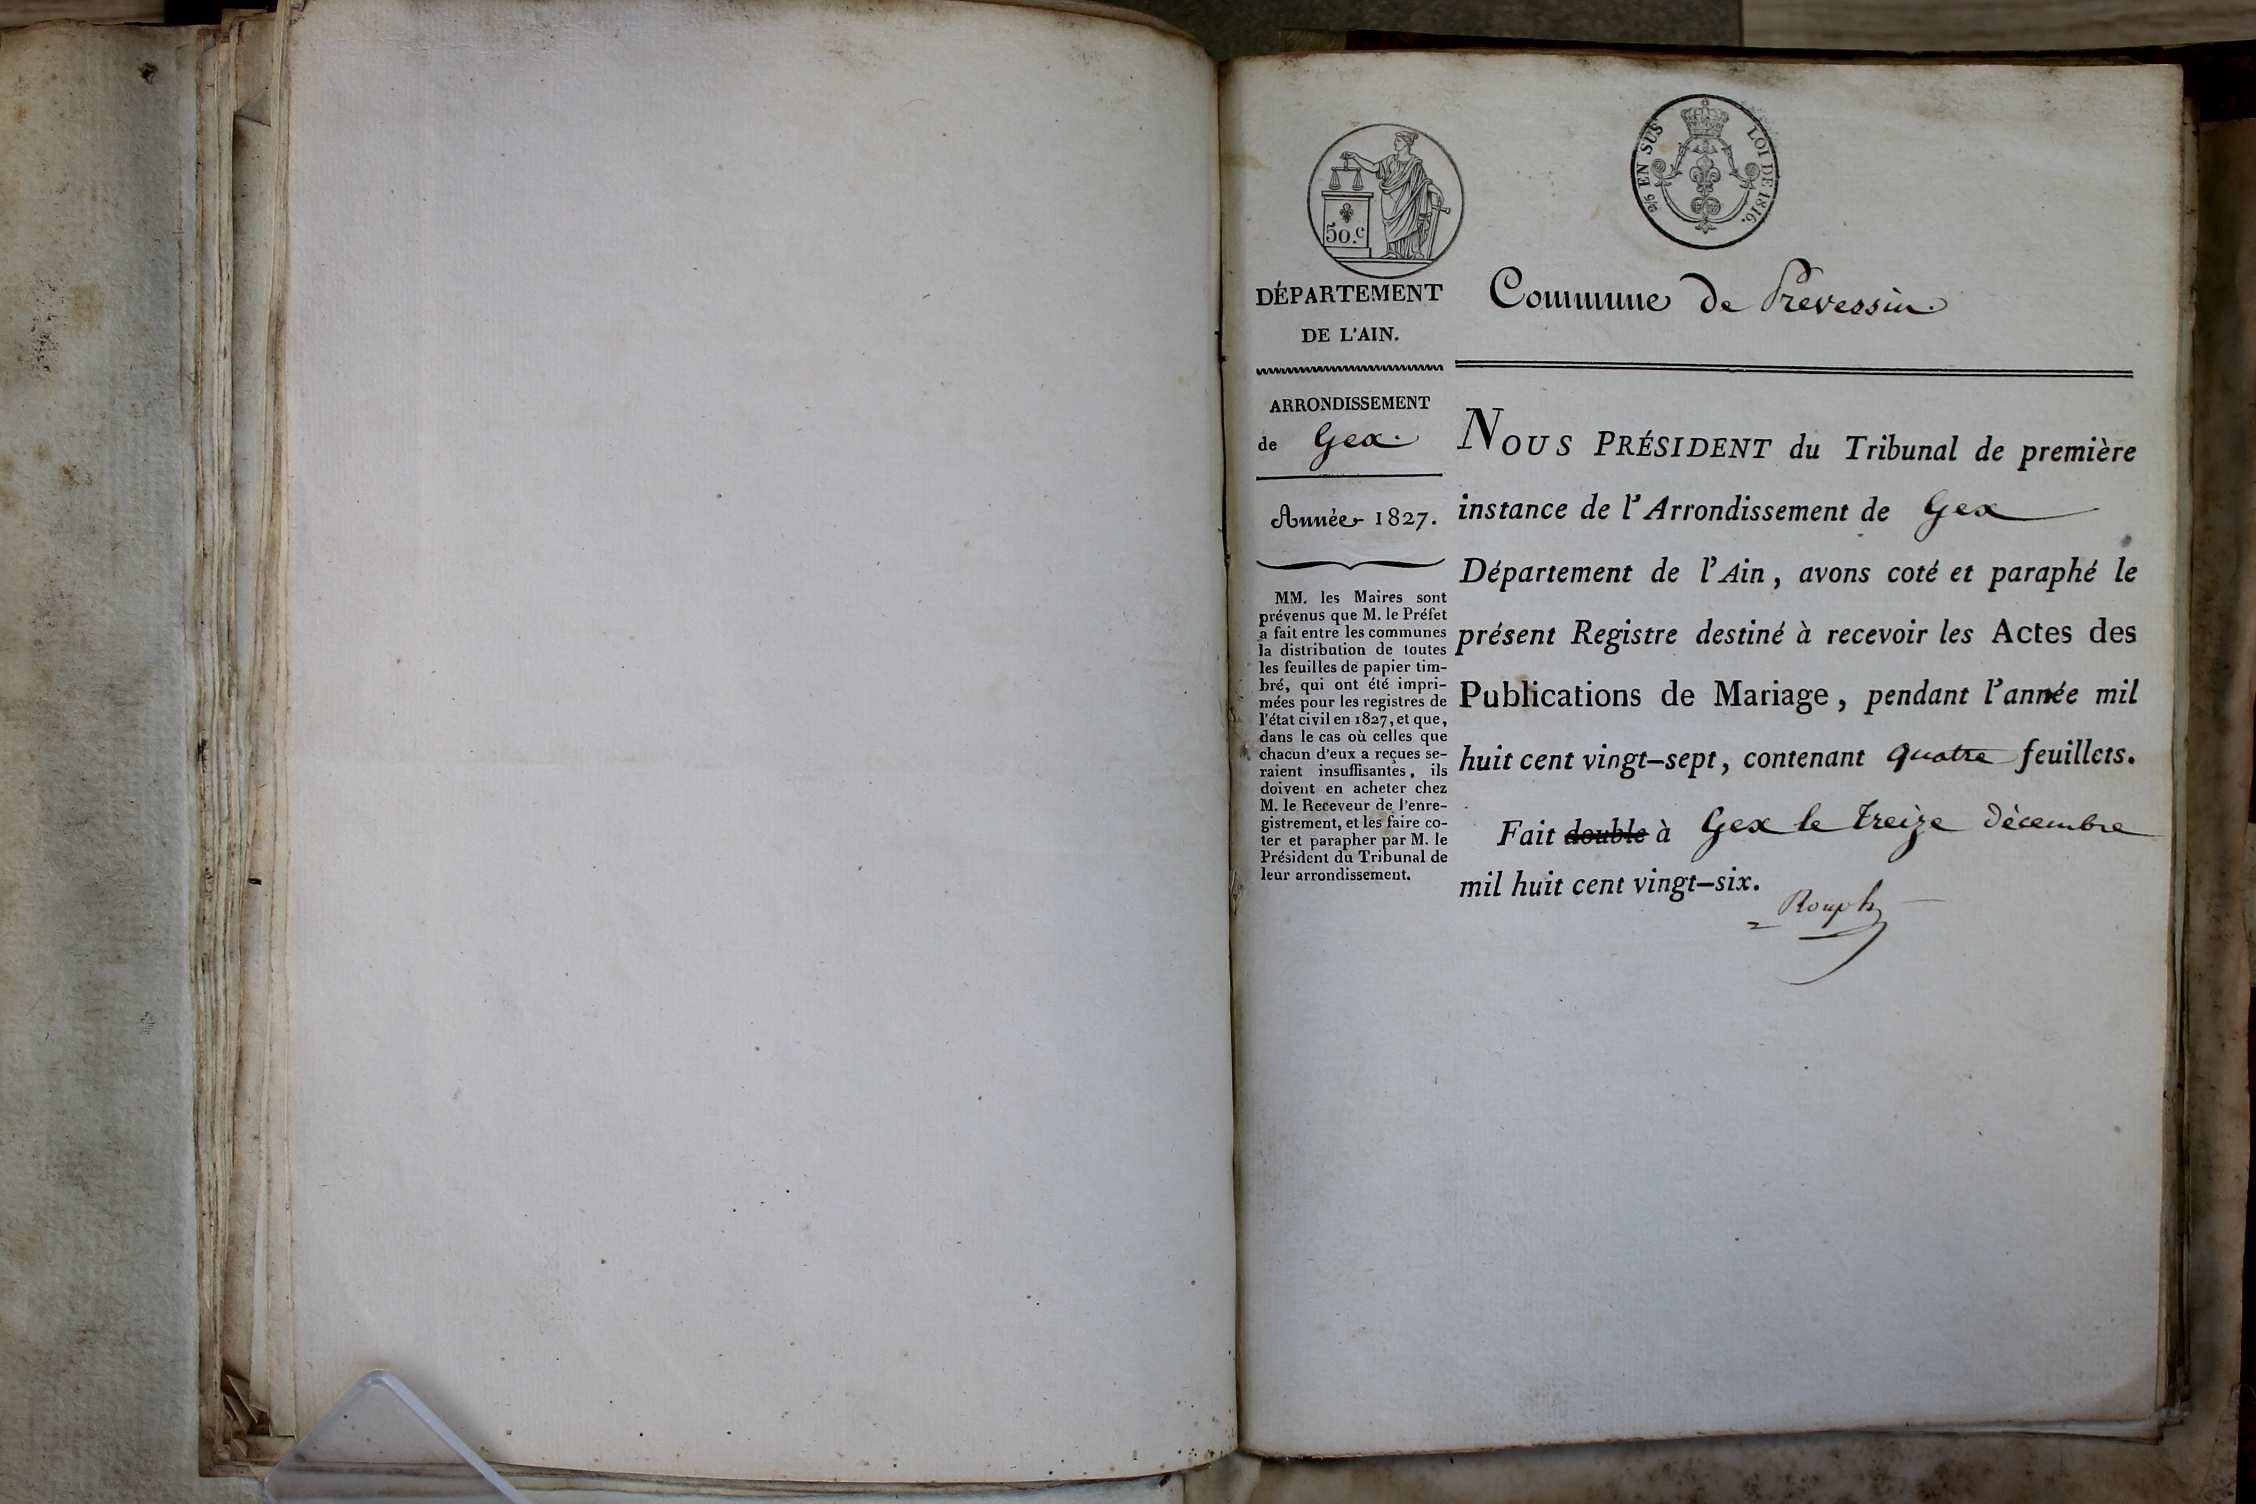 50.c
2/5 EN SUS
LOI DE 1816.
DÉPARTEMENT
DE L'AIN.
ARRONDISSEMENT
de Gex.
Année 1827.
MM. les Maires sont
prévenus que M. le Préfet
a fait entre les communes
la distribution de toutes
les feuilles de papier tim-
bré, qui ont été impri-
mées pour les registres de
l'état civil en 1827, et que,
dans le cas où celles que
chacun d'eux a reçues se-
raient insuffisantes, ils
doivent en acheter chez
M. le Receveur de l'enre-
gistrement, et les faire co-
ter et parapher par M. le
Président du Tribunal de
leur arrondissement.
Commune de Prevessin.
NOUS PRÉSIDENT du Tribunal de première
instance de l'Arrondissement de Gex
Département de l'Ain, avons coté et paraphé le
présent Registre destiné à recevoir les Actes des
Publications de Mariage, pendant l'année mil
huit cent vingt-sept, contenant quatre feuillets.
Fait double à Gex le treize décembre
mil huit cent vingt-six.